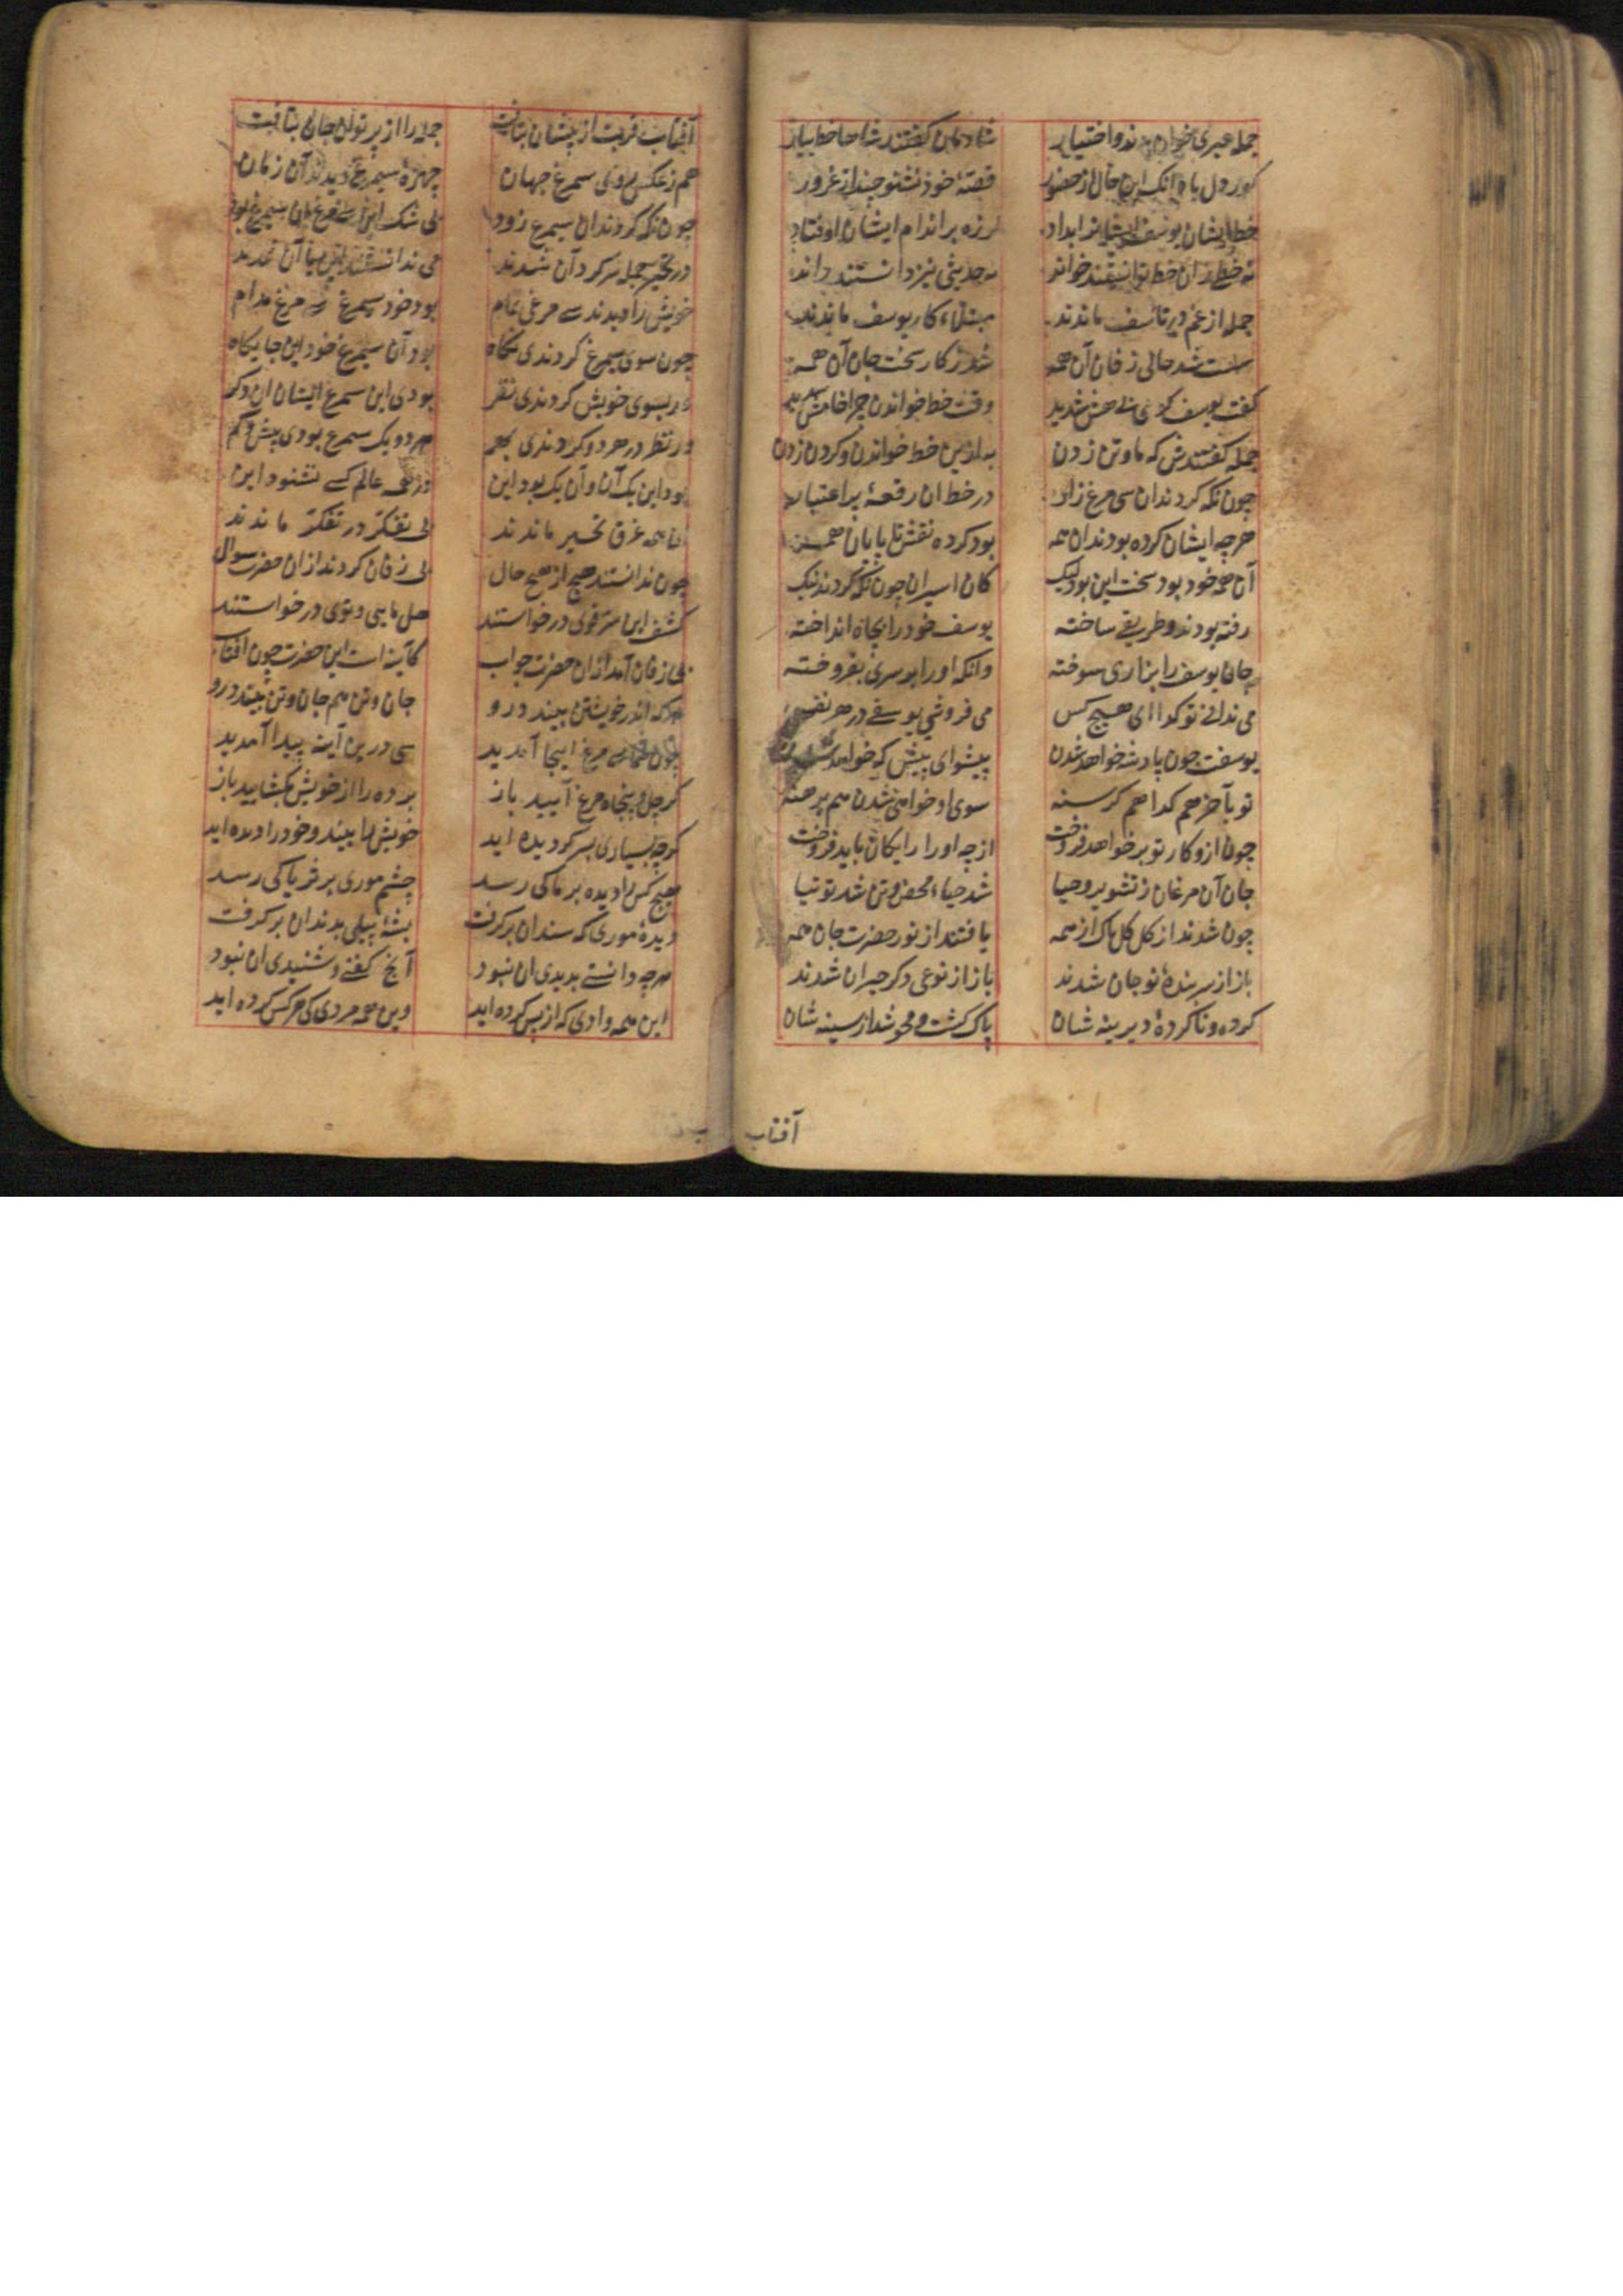 جمله عبری خوان بدند و اختیار
شادمان گفتند شاها خط بیار
کور دل باد آنک این حال از حضور
قصهٔ خود نشنود چند از غرور
خط ایشان یوسف ایشانرا بداد
لرزه بر اندام ایشان اوفتاد
نه خطی زان خط توانستند خواند
نه حدیثی نیز دانستند راند
جمله از غم در تاسف ماندند
مبتلاء کار یوسف ماندند
سست شد حالی زفان آن همه
شد ز کار سخت جان آن همه
گفت یوسف گوئی بی هش شدید
وقت خط خواندن چرا خامش شدید
جمله گفتندش که ما و تن زدن
به ازین خط خواندن و گردن زدن
چون نگه کردند آن سی مرغ زار
در خط آن رقعهٔ پر اعتبار
هرچه ایشان کرده بودند آن همه
بود کرده نقش تا پایان همه
آن همه خود بود سخت این بود لیک
کان اسیران چون نگه کردند نیک
رفته بودند و طریقی ساخته
یوسف خود را بچاه انداخته
جان یوسف را بزاری سوخته
وانگه او را بر سری بفروخته
می ندانی تو گدا ای هیچ کس
می فروشی یوسفی در هر نفس
یوسفت چون پادشه خواهد شدن
پیشوای پیشگه خواهد شدن
تو بآخر هم گدا هم گرسنه
سوی او خواهی شدن هم برهنه
چون ازو کار تو بر خواهد فروخت
از چه او را رایگان باید فروخت
جان آن مرغان ز تشویر و حیا
شد حیاء محض و تن شد توتیا
چون شدند از کل کل پاک از همه
یافتند از نور حضرت جان همه
باز از سر بندهٔ نو جان شدند
باز از نوعی دگر حیران شدند
کرده و ناکردهٔ دیرینه شان
پاک گشت و محو شد از سینه شان
آفتاب
آفتاب قربت از پیشان بتافت
جمله را از پرتو آن جان بتافت
هم ز عکس روی سیمرغ جهان
چهرهٔ سیمرغ دیدند آن زمان
چون نگه کردند آن سیمرغ زود
بی شک این سی مرغ آن سیمرغ بود
در تحیر جمله سرگردان شدند
می ندانستند این یا آن شدند
خویش را دیدند سی مرغی تمام
بود خود سیمرغ سی مرغ مدام
چون سوی سیمرغ کردندی نگاه
بود آن سیمرغ خود این جایگاه
ور بسوی خویش کردندی نظر
بودی این سیمرغ ایشان آن دگر
ور نظر در هر دو کردندی بهم
هر دو یک سیمرغ بودی بیش و کم
بود این یک آن و آن یک بود این
در همه عالم کسی نشنود این
آن همه غرق تحیر ماندند
بی تفکر در تفکر ماندند
چون ندانستند هیچ از هیچ حال
بی زفان کردند از آن حضرت سوال
کشف این سر قوی درخواستند
حل مایی و توی درخواستند
بی زفان آمد از آن حضرت جواب
کاینه است این حضرت چون آفتاب
هرکه اندر خویشتن بیند درو
جان و تن هم جان و تن بیند درو
چون شما سی مرغ اینجا آمدید
سی درین آینه پیدا آمدید
گر چل و پنجاه مرغ آیید باز
پرده را از خویش بگشایید باز
گرچه بسیاری بسر گردیده اید
خویش را بینید و خود را دیده اید
هیچ کس را دیده بر ما کی رسد
چشم موری بر ثریا کی رسد
دیدهٔ موری که سندان برگرفت
پشهٔ پیلی بدندان برگرفت
هرچه دانستی بدیدی آن نبود
آنچ گفتی و شنیدی آن نبود
این همه وادی که از پس کرده اید
وین همه مردی که هر کس کرده اید